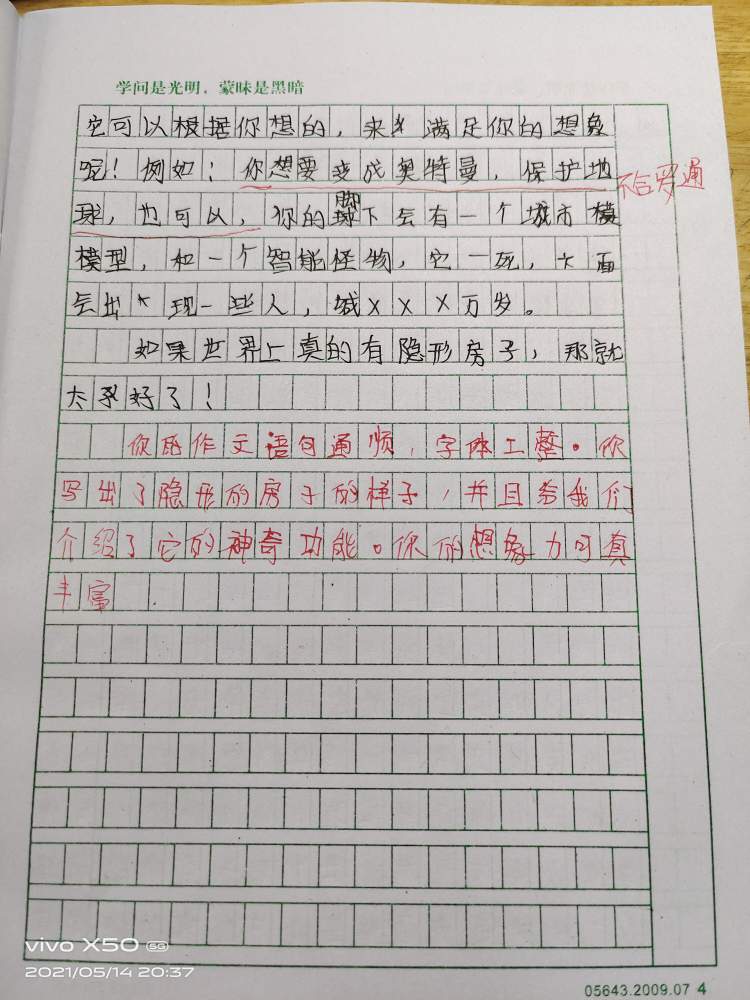 学问是光明，蒙昧是黑暗
它可以根据你想的，来满足你的想象
呢！例如：你想要变成奥特曼，保护地
球，也可以，你的脚下会有一个城市模
模型，和一个智能怪物，它一死，上面
会出现一些人，喊XXX万岁。
如果世界上真的有隐形房子，那就
太好了！
不合罗通
你的作文语句通顺，字体工整。你
写出了隐形的房子的样子，并且给我们
介绍了它的神奇功能。你的想象力可真
丰富
vivo X50 5G
2021/05/14 20:37
05643.2009.07 4